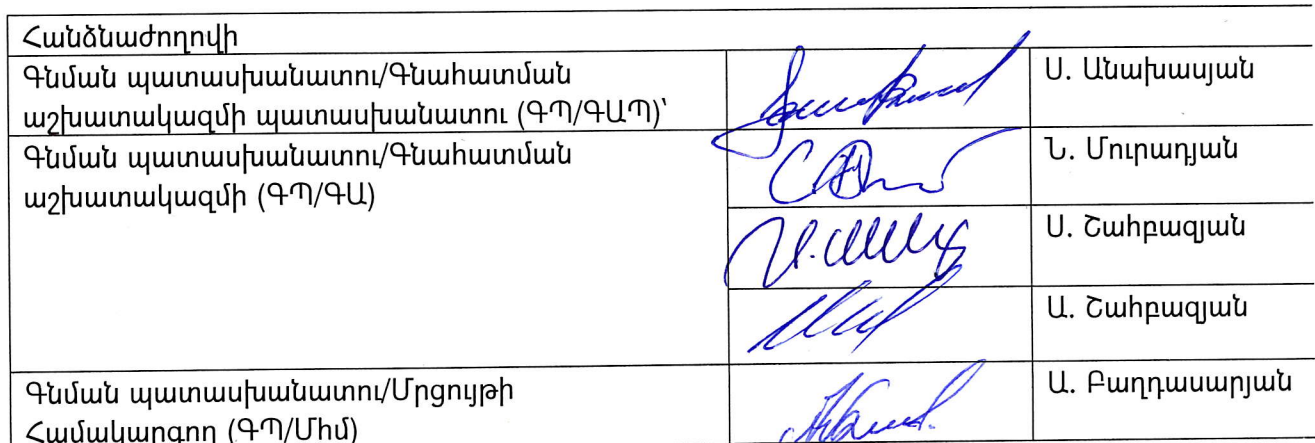 Հանձնաժողովի
Գնման պատասխանատու/Գնահատման
աշխատակազմի պատասխանատու (ԳՊ/ԳԱՊ)՝
Ս. Անախասյան
Գնման պատասխանատու/Գնահատման
աշխատակազմի (ԳՊ/ԳԱ)
Ն. Մուրադյան
Ս. Շահբազյան
Ա. Շահբազյան
Գնման պատասխանատու/Մրցույթի
Համակարգող (ԳՊ/Մհմ)
Ա. Բաղդասարյան